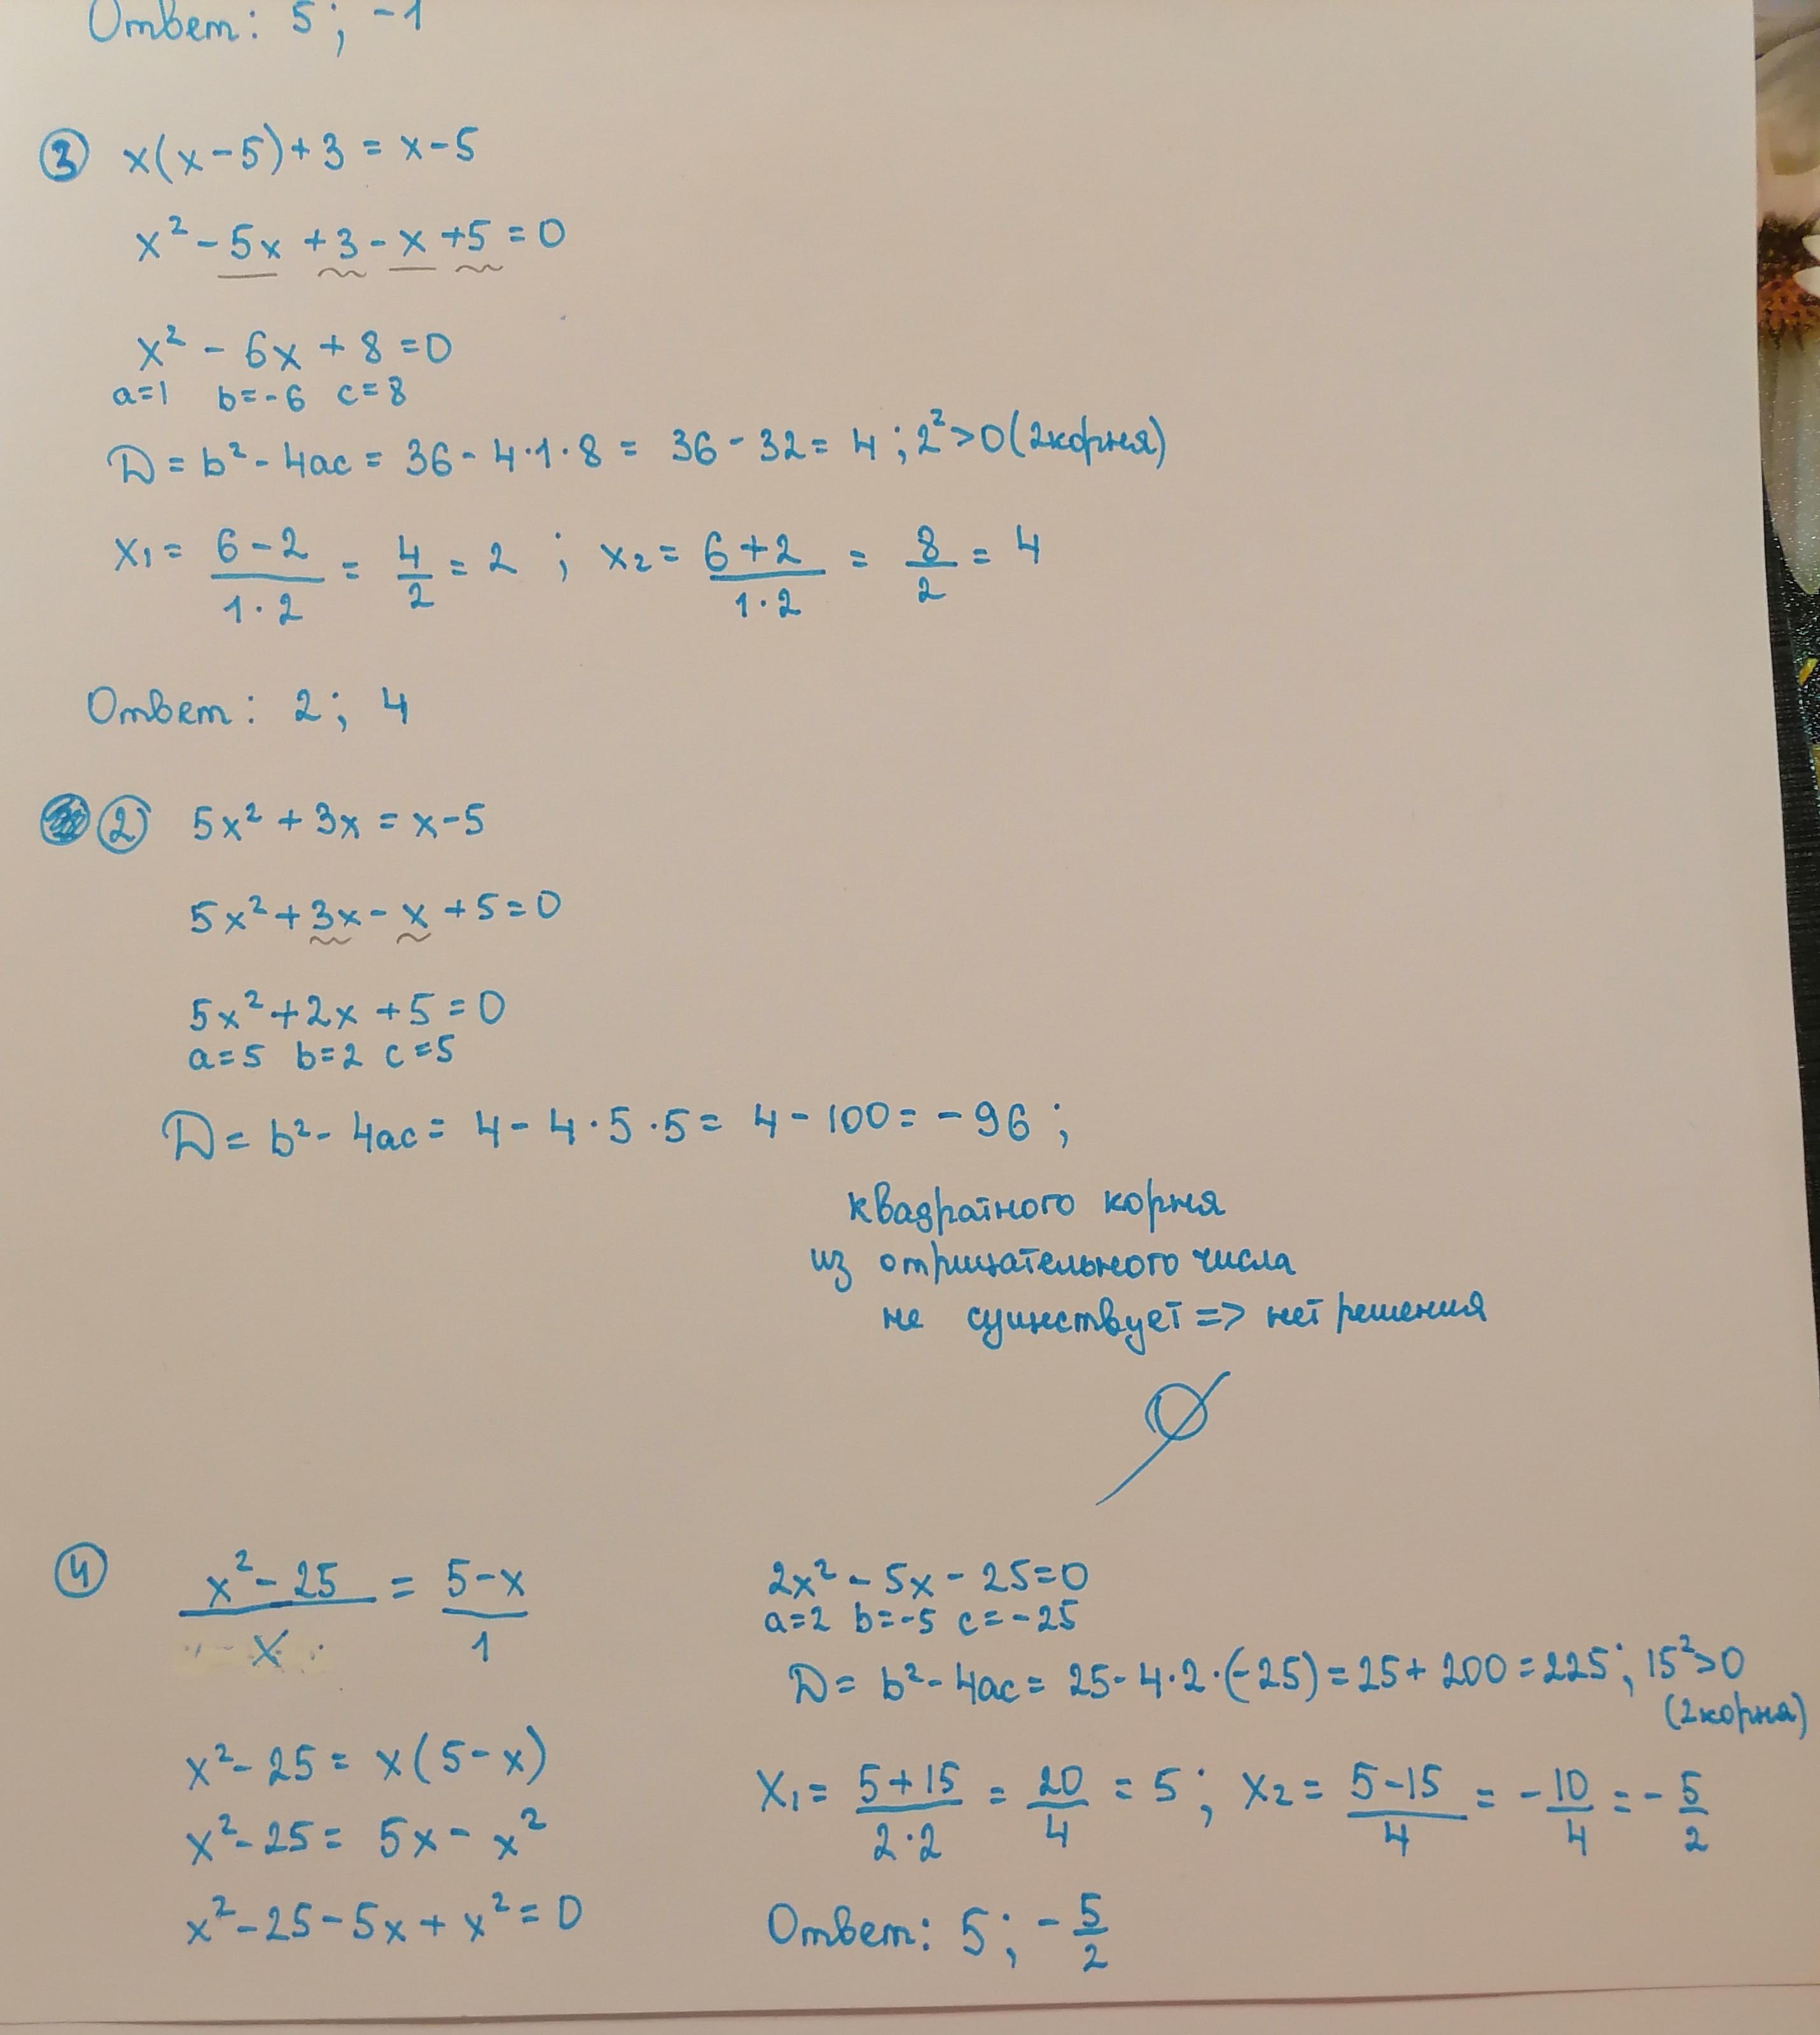 Ответ: 5; -1
③ x(x-5)+3 = x-5
x² - 5x + 3 - x + 5 = 0
x² - 6x + 8 = 0
a=1 b=-6 c=8
D = b² - 4ac = 36 - 4·1·8 = 36 - 32 = 4; 2² > 0 (2корня)
x₁ = (6-2)/(1·2) = 4/2 = 2 ; x₂ = (6+2)/(1·2) = 8/2 = 4
Ответ: 2; 4
② 5x² + 3x = x-5
5x² + 3x - x + 5 = 0
5x² + 2x + 5 = 0
a=5 b=2 c=5
D = b² - 4ac = 4 - 4·5·5 = 4 - 100 = -96 ;
квадратного корня
из отрицательного числа
не существует => нет решения
∅
④ (x² - 25)/x = (5-x)/1
x² - 25 = x(5-x)
x² - 25 = 5x - x²
x² - 25 - 5x + x² = 0
2x² - 5x - 25 = 0
a=2 b=-5 c=-25
D = b² - 4ac = 25 - 4·2·(-25) = 25 + 200 = 225; 15² > 0
(2корня)
x₁ = (5+15)/(2·2) = 20/4 = 5; x₂ = (5-15)/4 = -10/4 = -5/2
Ответ: 5; -5/2